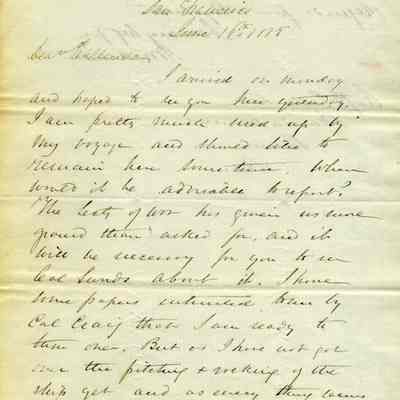 San Francisco
June 16th, 1875
I arrived on monday
and hoped to see you here yesterday.
I am pretty much used up by
my voyage and should like to
remain here some time. When
would it be advisable to report?
The Secty of War has given us more
ground than asked for, and it
will be necessary for you to see
Col about it. I have
some papers intrusted to me by
Col Craig that I am ready to
turn over. But as I have not got
over the pitching & rocking of the
ship yet and as every thing seems